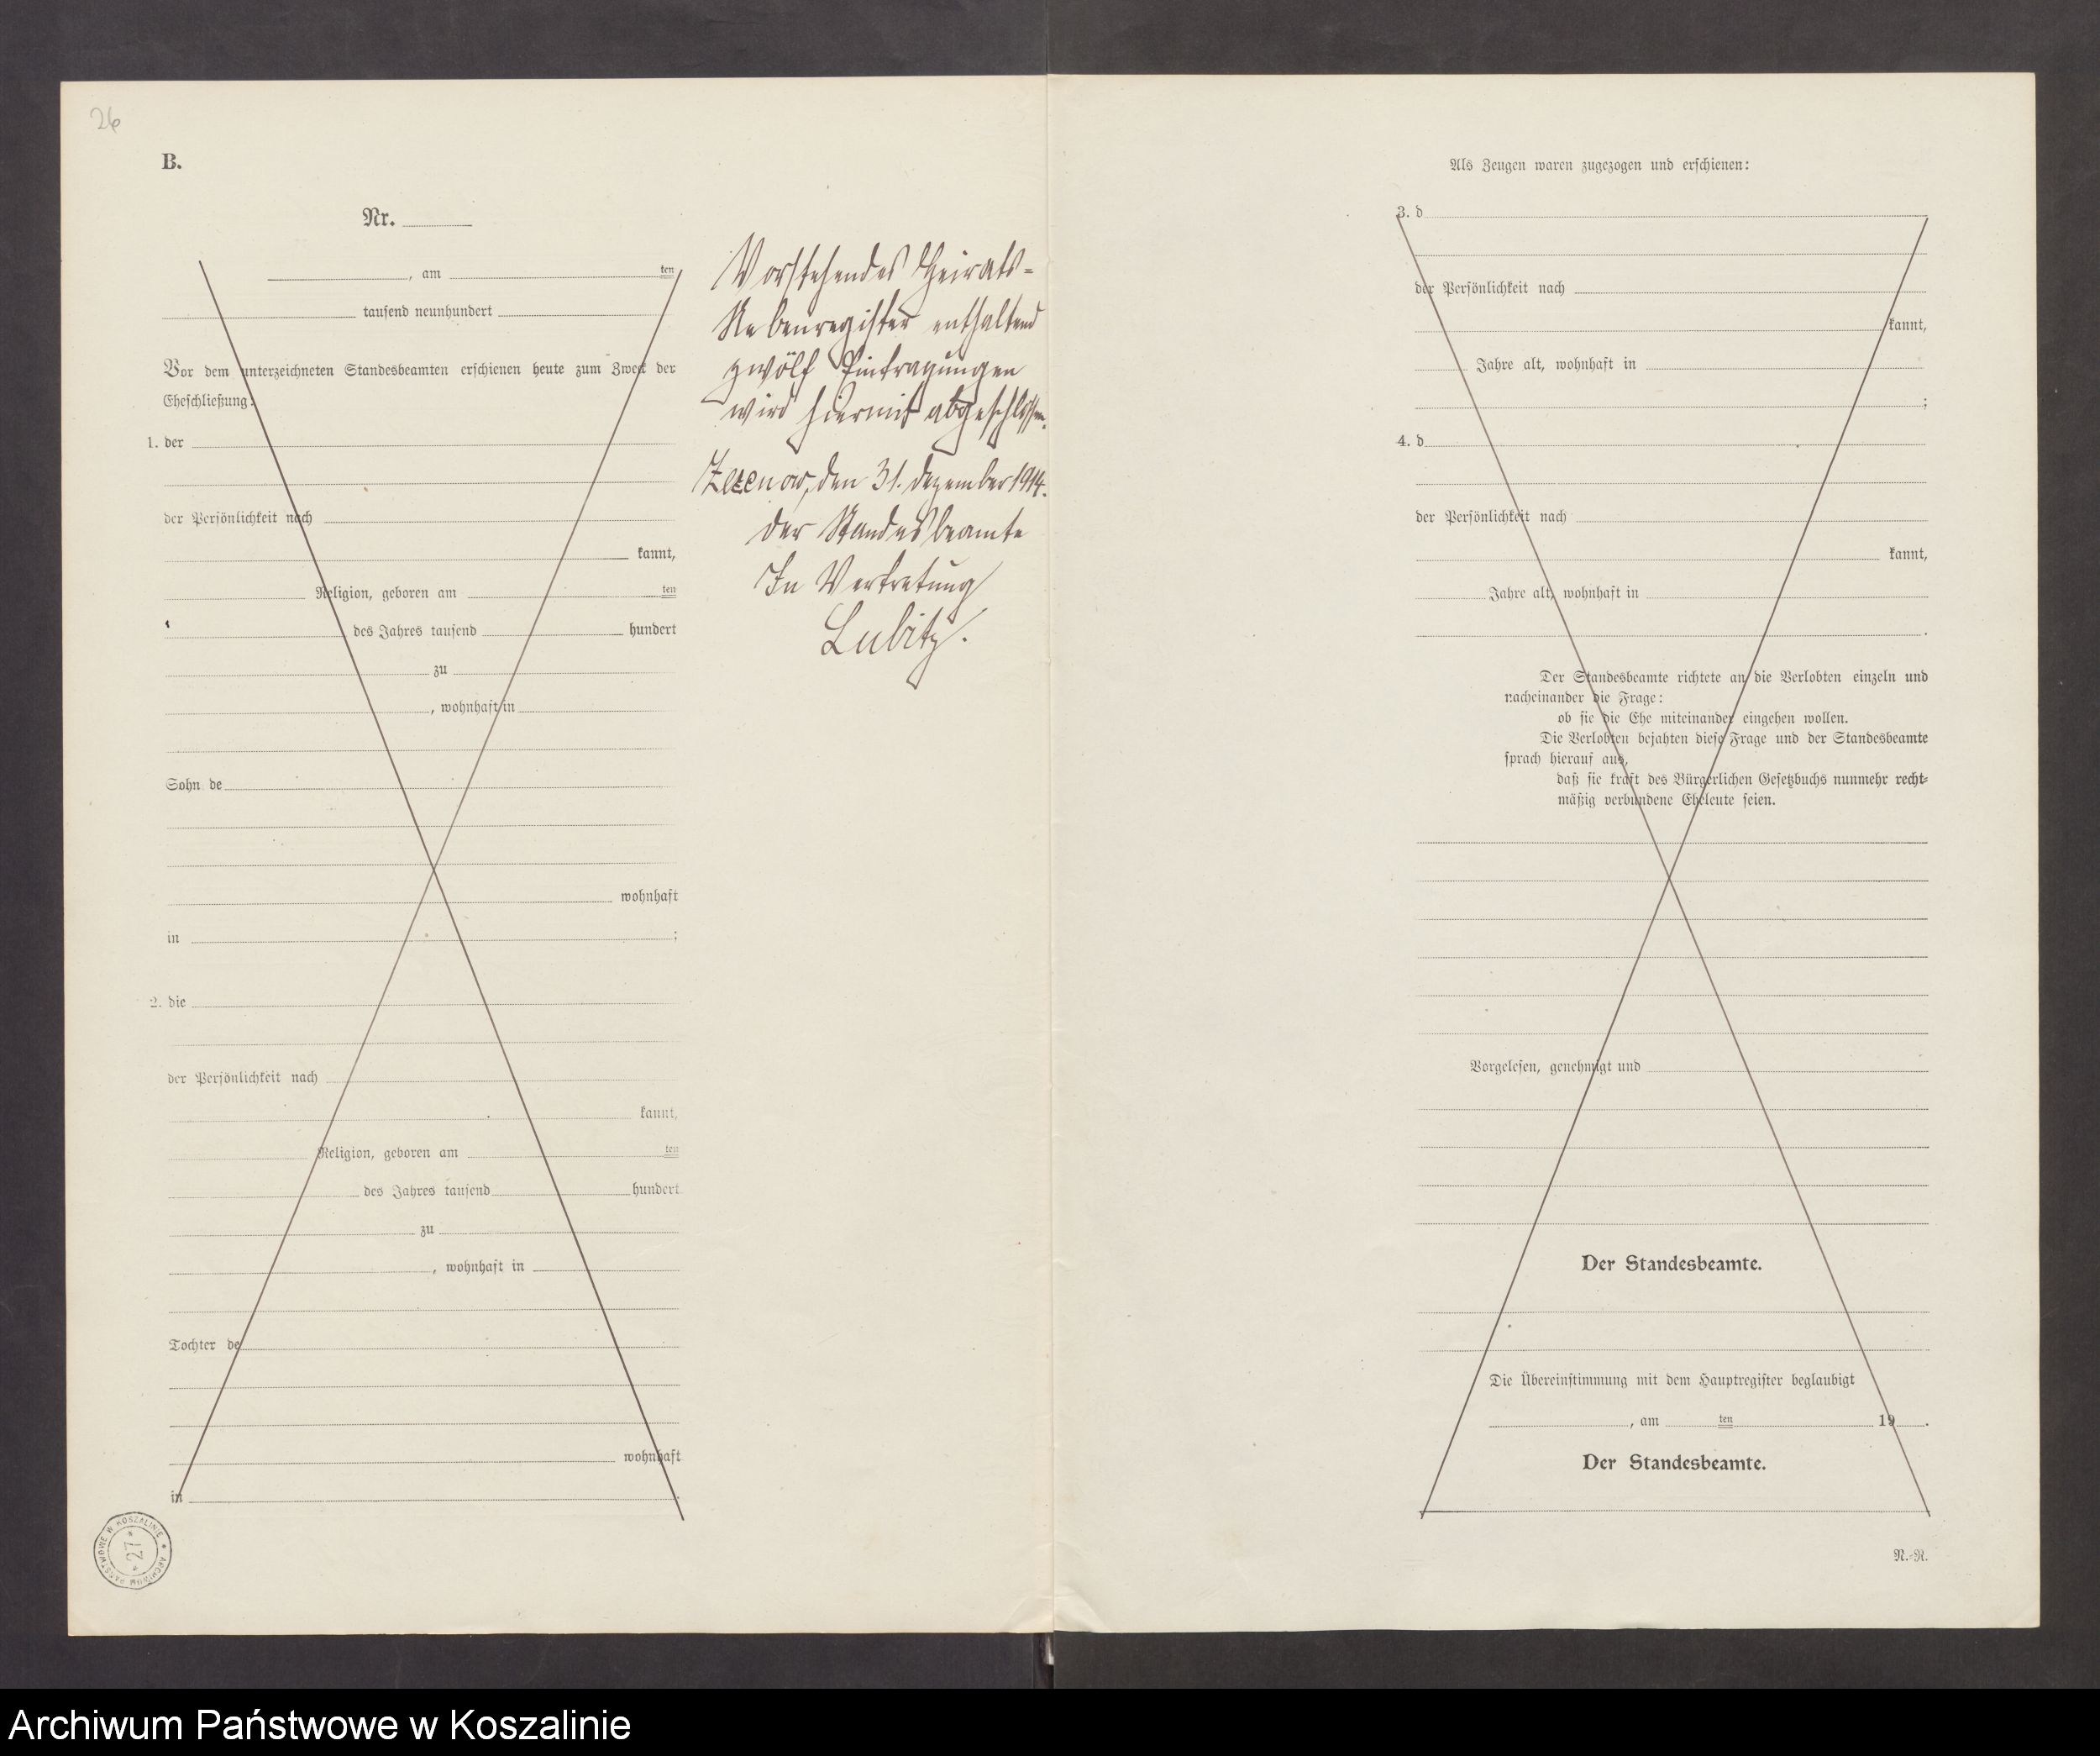 26
B.
Nr.
, am ten
tausend neunhundert
Vor dem unterzeichneten Standesbeamten erschienen heute zum Zweck der
Eheschließung:
1. der
der Persönlichkeit nach
kannt,
Religion, geboren am ten
des Jahres tausend hundert
zu
, wohnhaft in
Sohn de
wohnhaft
in ;
2. die
der Persönlichkeit nach
kannt,
Religion, geboren am ten
des Jahres tausend hundert
zu
, wohnhaft in
Tochter de
wohnhaft
in
Vorstehendes Heirats-
Nebenregister enthaltend
zwölf Eintragungen
wird hiermit abgeschlossen.
Zezenow, den 31. Dezember 1914.
Der Standesbeamte
In Vertretung
Lubitz.
ARCHIWUM PAŃSTWOWE W KOSZALINIE
* 27 *
Als Zeugen waren zugezogen und erschienen:
3. d
der Persönlichkeit nach
kannt,
Jahre alt, wohnhaft in
;
4. d
der Persönlichkeit nach
kannt,
Jahre alt, wohnhaft in
.
Der Standesbeamte richtete an die Verlobten einzeln und
nacheinander die Frage:
ob sie die Ehe miteinander eingehen wollen.
Die Verlobten bejahten diese Frage und der Standesbeamte
sprach hierauf aus,
daß sie kraft des Bürgerlichen Gesetzbuchs nunmehr recht-
mäßig verbundene Eheleute seien.
Vorgelesen, genehmigt und
Der Standesbeamte.
Die Übereinstimmung mit dem Hauptregister beglaubigt
, am ten 19 .
Der Standesbeamte.
N.-R.
Archiwum Państwowe w Koszalinie